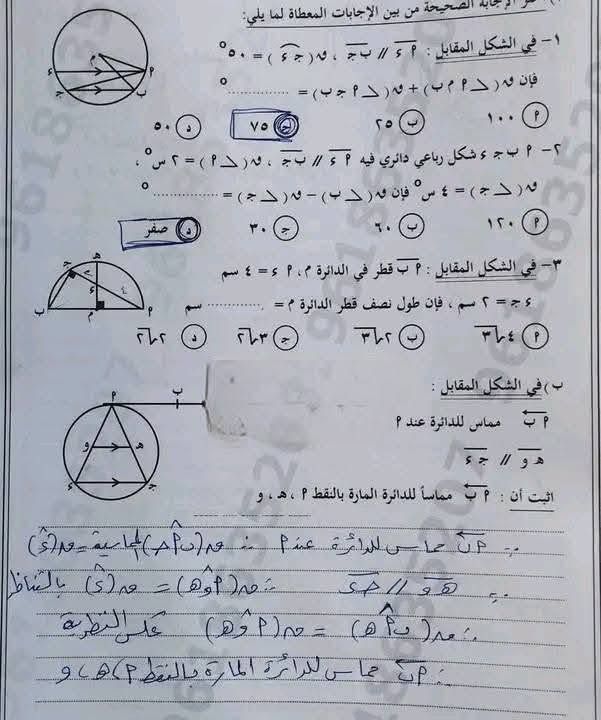 الإجابة الصحيحة من بين الإجابات المعطاة لما يلي:
١- في الشكل المقابل : م ء // ب ج ، ق (ج ء) = ٥٠°
فإن ق (ح م ب) + ق (ح ج ب) = ............ °
م ١٠٠ ب ٢٥ ج ٧٥ د ٥٠
٢- م ب ج ء شكل رباعي دائري فيه م ء // ب ج ، ق (م) = ٢ س° ،
ق (ج) = ٤ س° فإن ق (ب) - ق (ج) = ............ °
م ١٢٠ ب ٦٠ ج ٣٠ د صفر
٣- في الشكل المقابل : م ب قطر في الدائرة م ، م ء = ٤ سم
ء ج = ٢ سم ، فإن طول نصف قطر الدائرة م = ............ سم
م ٤√٣ ب ٢√٣ ج ٣√٢ د ٢√٢
ب) في الشكل المقابل :
م ب مماس للدائرة عند م
ه و // ج ء
اثبت أن : م ب مماساً للدائرة المارة بالنقط م ، ه ، و
∵ م ب مماس للدائرة عند م ∴ ق (ب م ج) المماسية = ق (ء)
∵ ه و // ج ء ∴ ق (م و ه) = ق (ء) بالتناظر
∴ ق (ب م ه) = ق (م و ه) عكس النظرية
∴ م ب مماس للدائرة المارة بالنقط م ، ه ، و